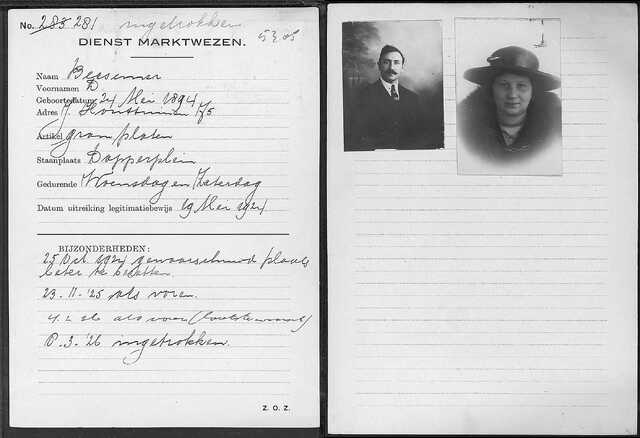 No. 283 281 ingetrokken
DIENST MARKTWEZEN.
Naam Beesemer
Voornamen D
Geboortedatum 24 Mei 1894
Adres J. Houttuinen 175
Artikel gram. platen
Standplaats Dapperplein
Gedurende Woensdag en Zaterdag
Datum uitreiking legitimatiebewijs 19 Mei 1924
BIJZONDERHEDEN:
25 Oct. 1924 gewaarschuwd plaats
beter te bezetten.
23.11.'25 als voren.
als voren
3.'26 ingetrokken.
Z. O. Z.